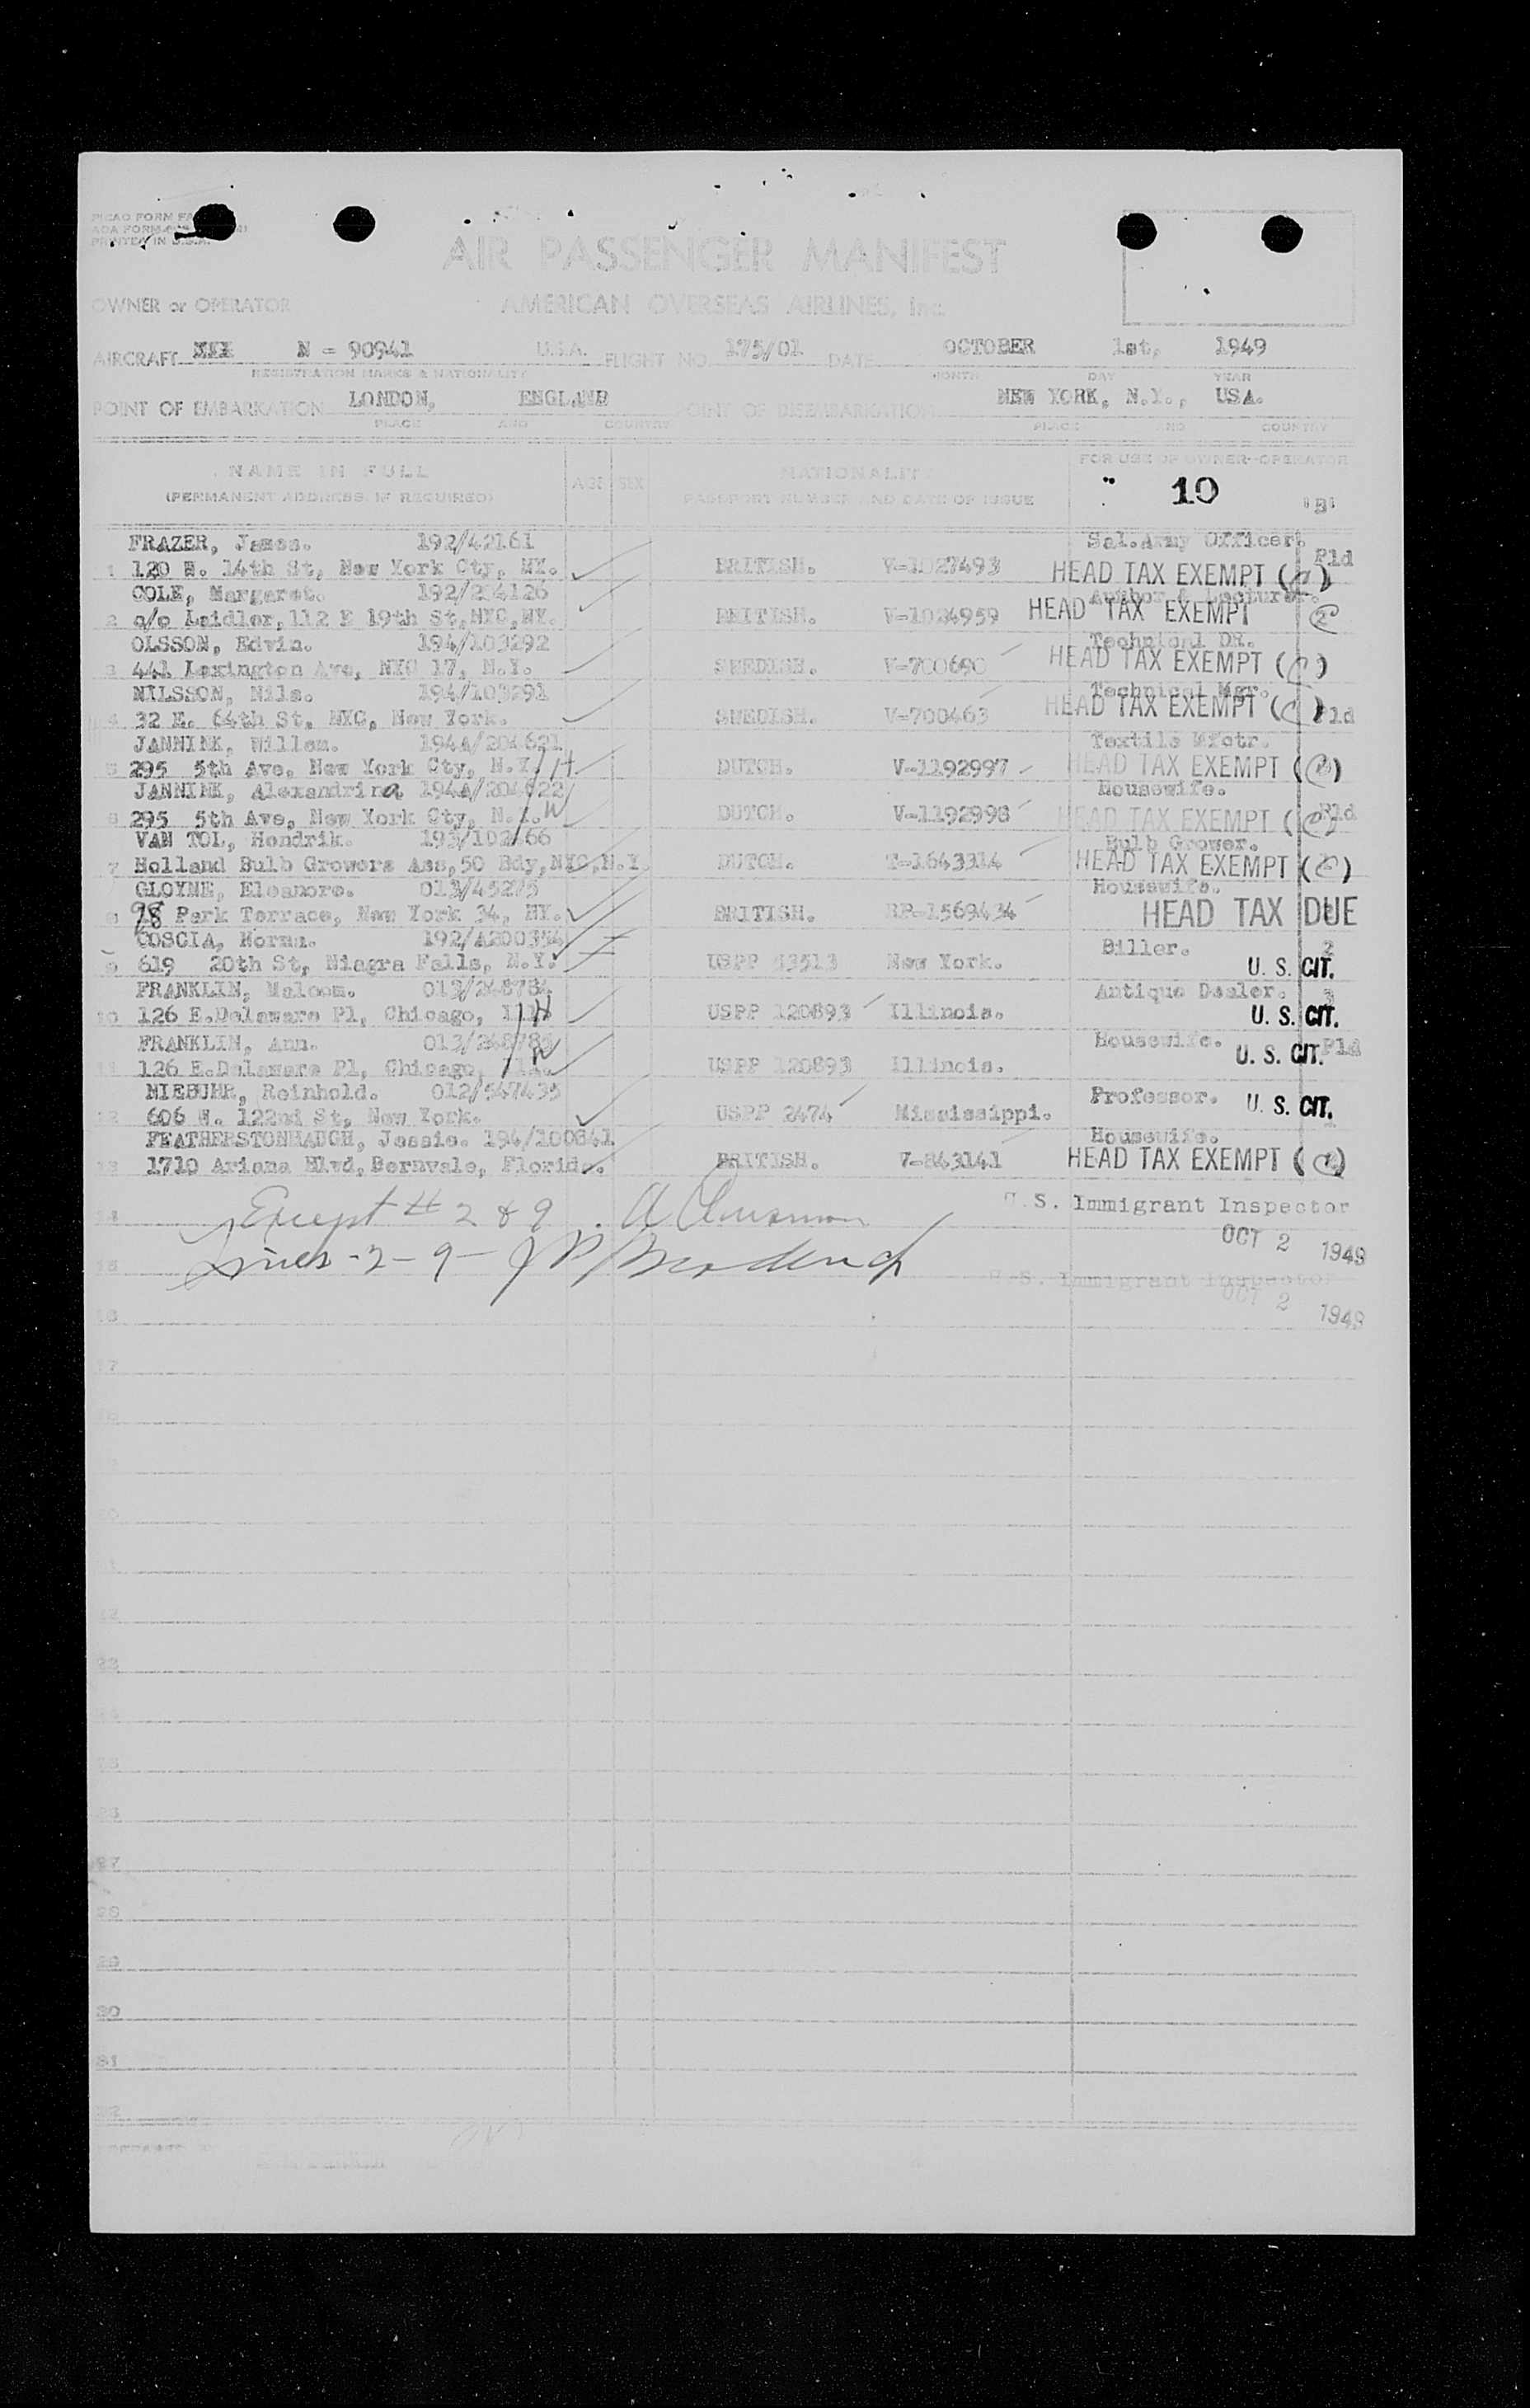 AIR PASSENGER MANIFEST
OWNER or OPERATOR AMERICAN OVERSEAS AIRLINES, Inc.
AIRCRAFT XXX N - 90941 U.S.A. FLIGHT NO. 175/01 DATE OCTOBER 1st, 1949
REGISTRATION MARKS & NATIONALITY MONTH DAY YEAR
POINT OF EMBARKATION LONDON, ENGLAND POINT OF DISEMBARKATION NEW YORK, N.Y., USA.
PLACE AND COUNTRY PLACE AND COUNTRY
NAME IN FULL AGE SEX NATIONALITY FOR USE OF OWNER-OPERATOR
(PERMANENT ADDRESS, IF REQUIRED) PASSPORT NUMBER AND DATE OF ISSUE 10 "B"
FRAZER, James. 192/42161 Sal.Army Officer.
1 120 W. 14th St, New York Cty, NY. BRITISH. V-1027493 HEAD TAX EXEMPT Pld
COLE, Margaret. 192/204126 Author & Lecturer.
2 c/o Laidler, 112 E 19th St, NYC, NY. BRITISH. V-1024959 HEAD TAX EXEMPT
OLSSON, Edvin. 194/103292 Technical DR.
3 441 Lexington Ave, NYC 17, N.Y. SWEDISH. V-700690 HEAD TAX EXEMPT
NILSSON, Nils. 194/103291 Technical Mgr.
4 32 E. 64th St, NYC, New York. SWEDISH. V-700463 HEAD TAX EXEMPT Pld
JANNINK, Willem. 194A/204621 Textile Mfctr.
5 295 5th Ave, New York Cty, N.Y. H DUTCH. V-1192997 HEAD TAX EXEMPT
JANNINK, Alexandrina 194A/204622 Housewife.
6 295 5th Ave, New York Cty, N.Y. W DUTCH. V-1192998 HEAD TAX EXEMPT Pld
VAN TOL, Hendrik. 193/102466 Bulb Grower.
7 Holland Bulb Growers Ass, 50 Bdy, NYC, N.Y. DUTCH. T-1643314 HEAD TAX EXEMPT
GLOYNE, Eleanore. 013/45275 Housewife.
8 98 Park Terrace, New York 34, NY. BRITISH. RP-1569434 HEAD TAX DUE
COSCIA, Norma. 192/A200354 Biller. 2
9 619 20th St, Niagra Falls, N.Y. USPP 13513 New York. U. S. CIT.
FRANKLIN, Malcom. 013/248784 Antique Dealer. 3
10 126 E.Delaware Pl, Chicago, Ill. H USPP 120893 Illinois. U. S. CIT.
FRANKLIN, Ann. 013/248785 Housewife. Pld
11 126 E.Delaware Pl, Chicago, Ill. W USPP 120893 Illinois. U. S. CIT.
NIEBUHR, Reinhold. 012/547435 Professor.
12 606 W. 122nd St, New York. USPP 2474 Mississippi. U. S. CIT.
FEATHERSTONHAUGH, Jessie. 194/100841 Housewife.
13 1710 Ariana Blvd, Bernvale, Florida. BRITISH. V-843141 HEAD TAX EXEMPT
14 Except # 2 & 9 U.S. Immigrant Inspector
OCT 2 1949
15 Lines -2-9- U.S. Immigrant Inspector
OCT 2 1949
16
17
22
23
26
27
28
29
30
31
32